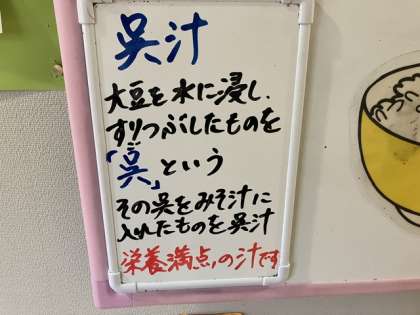 呉汁
大豆を水に浸し、
すりつぶしたものを
「呉」という
ゴ
その呉をみそ汁に
入れたものを呉汁
栄養満点の汁です